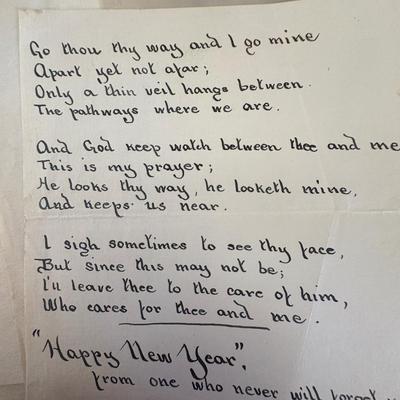 Go thou thy way and I go mine
Apart yet not afar;
Only a thin veil hangs between.
The pathways where we are.
And God keep watch between thee and me
This is my prayer;
He looks thy way, he looketh mine,
And keeps us near.
I sigh sometimes to see thy face,
But since this may not be;
I'll leave thee to the care of him,
Who cares for thee and me.
"Happy New Year",
from one who never will forget